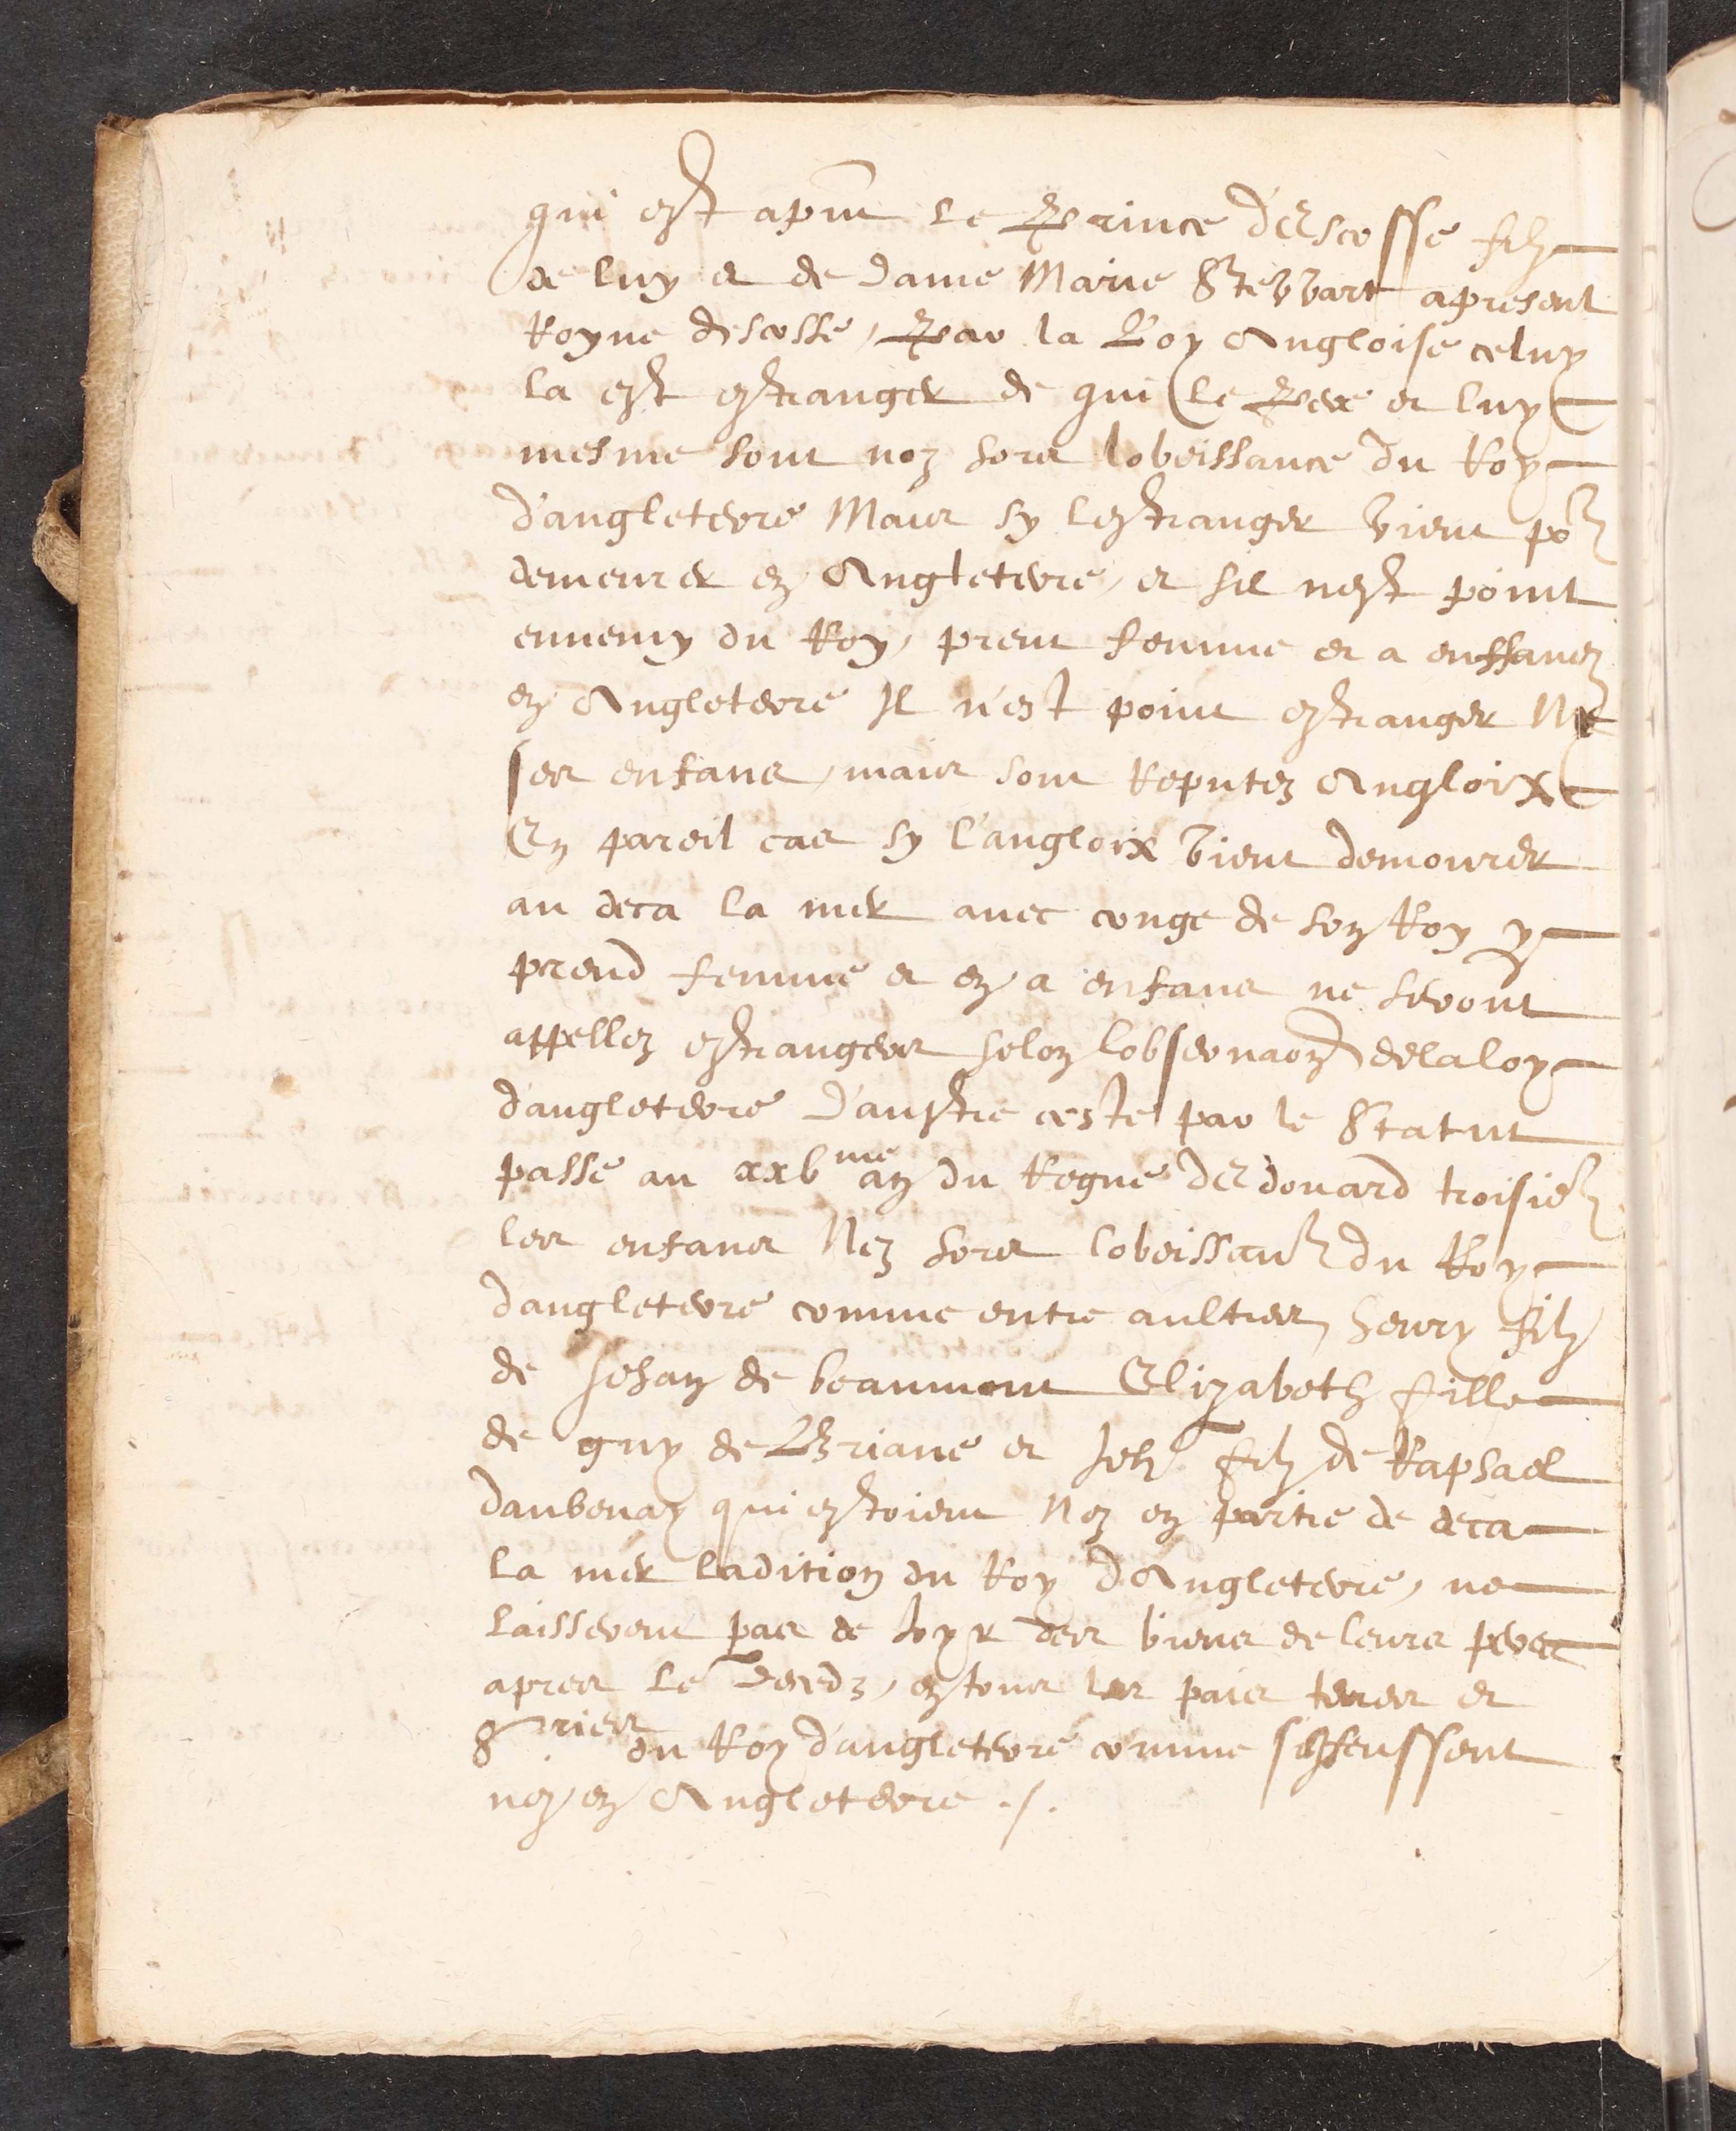 qui est apnt le Prince d'Escosse filz
de luy et de dame Marie Stevvart apresent
Royne descosse, Par la Loy Angloise celuy
la est estranger de qui le Pere et luy
mesme sont nez hors lobeissance du Roy
d'angleterre Mais sy lestranger vient por
demeurer en Angleterre, et sil nest point
ennemy du Roy, prent femme et a enffanez
en Angleterre Il n'est point estranger Ne
ses enfans, mais sont Reputez Angloix
En pareil cas sy l'angloix vient demourer
au deca la mer avec conge de son Roy y
prend femme et en a enfans ne seront
appellez estrangers selon lobservaon de la loy
d'angleterre D'austre ceste par le Statut
passe au xxvme an du Regne d'Edouard troisie
les enfans Nez hors lobeissan du Roy
dangleterre comme entre aultres, henry filz
de Jehan de beaumont Elizabeth fille
de guy de Briane et Jeh filz de Raphael
daubenay qui estoient Nez en partie de deca
la mer ladition du Roy d'Angleterre, ne
laisserent pas de Joyr des biens de leurs peres
apres le decedz, en tous les pais terres et
Sries du Roy d'angleterre comme silz feussent
nez en Angleterre ./.